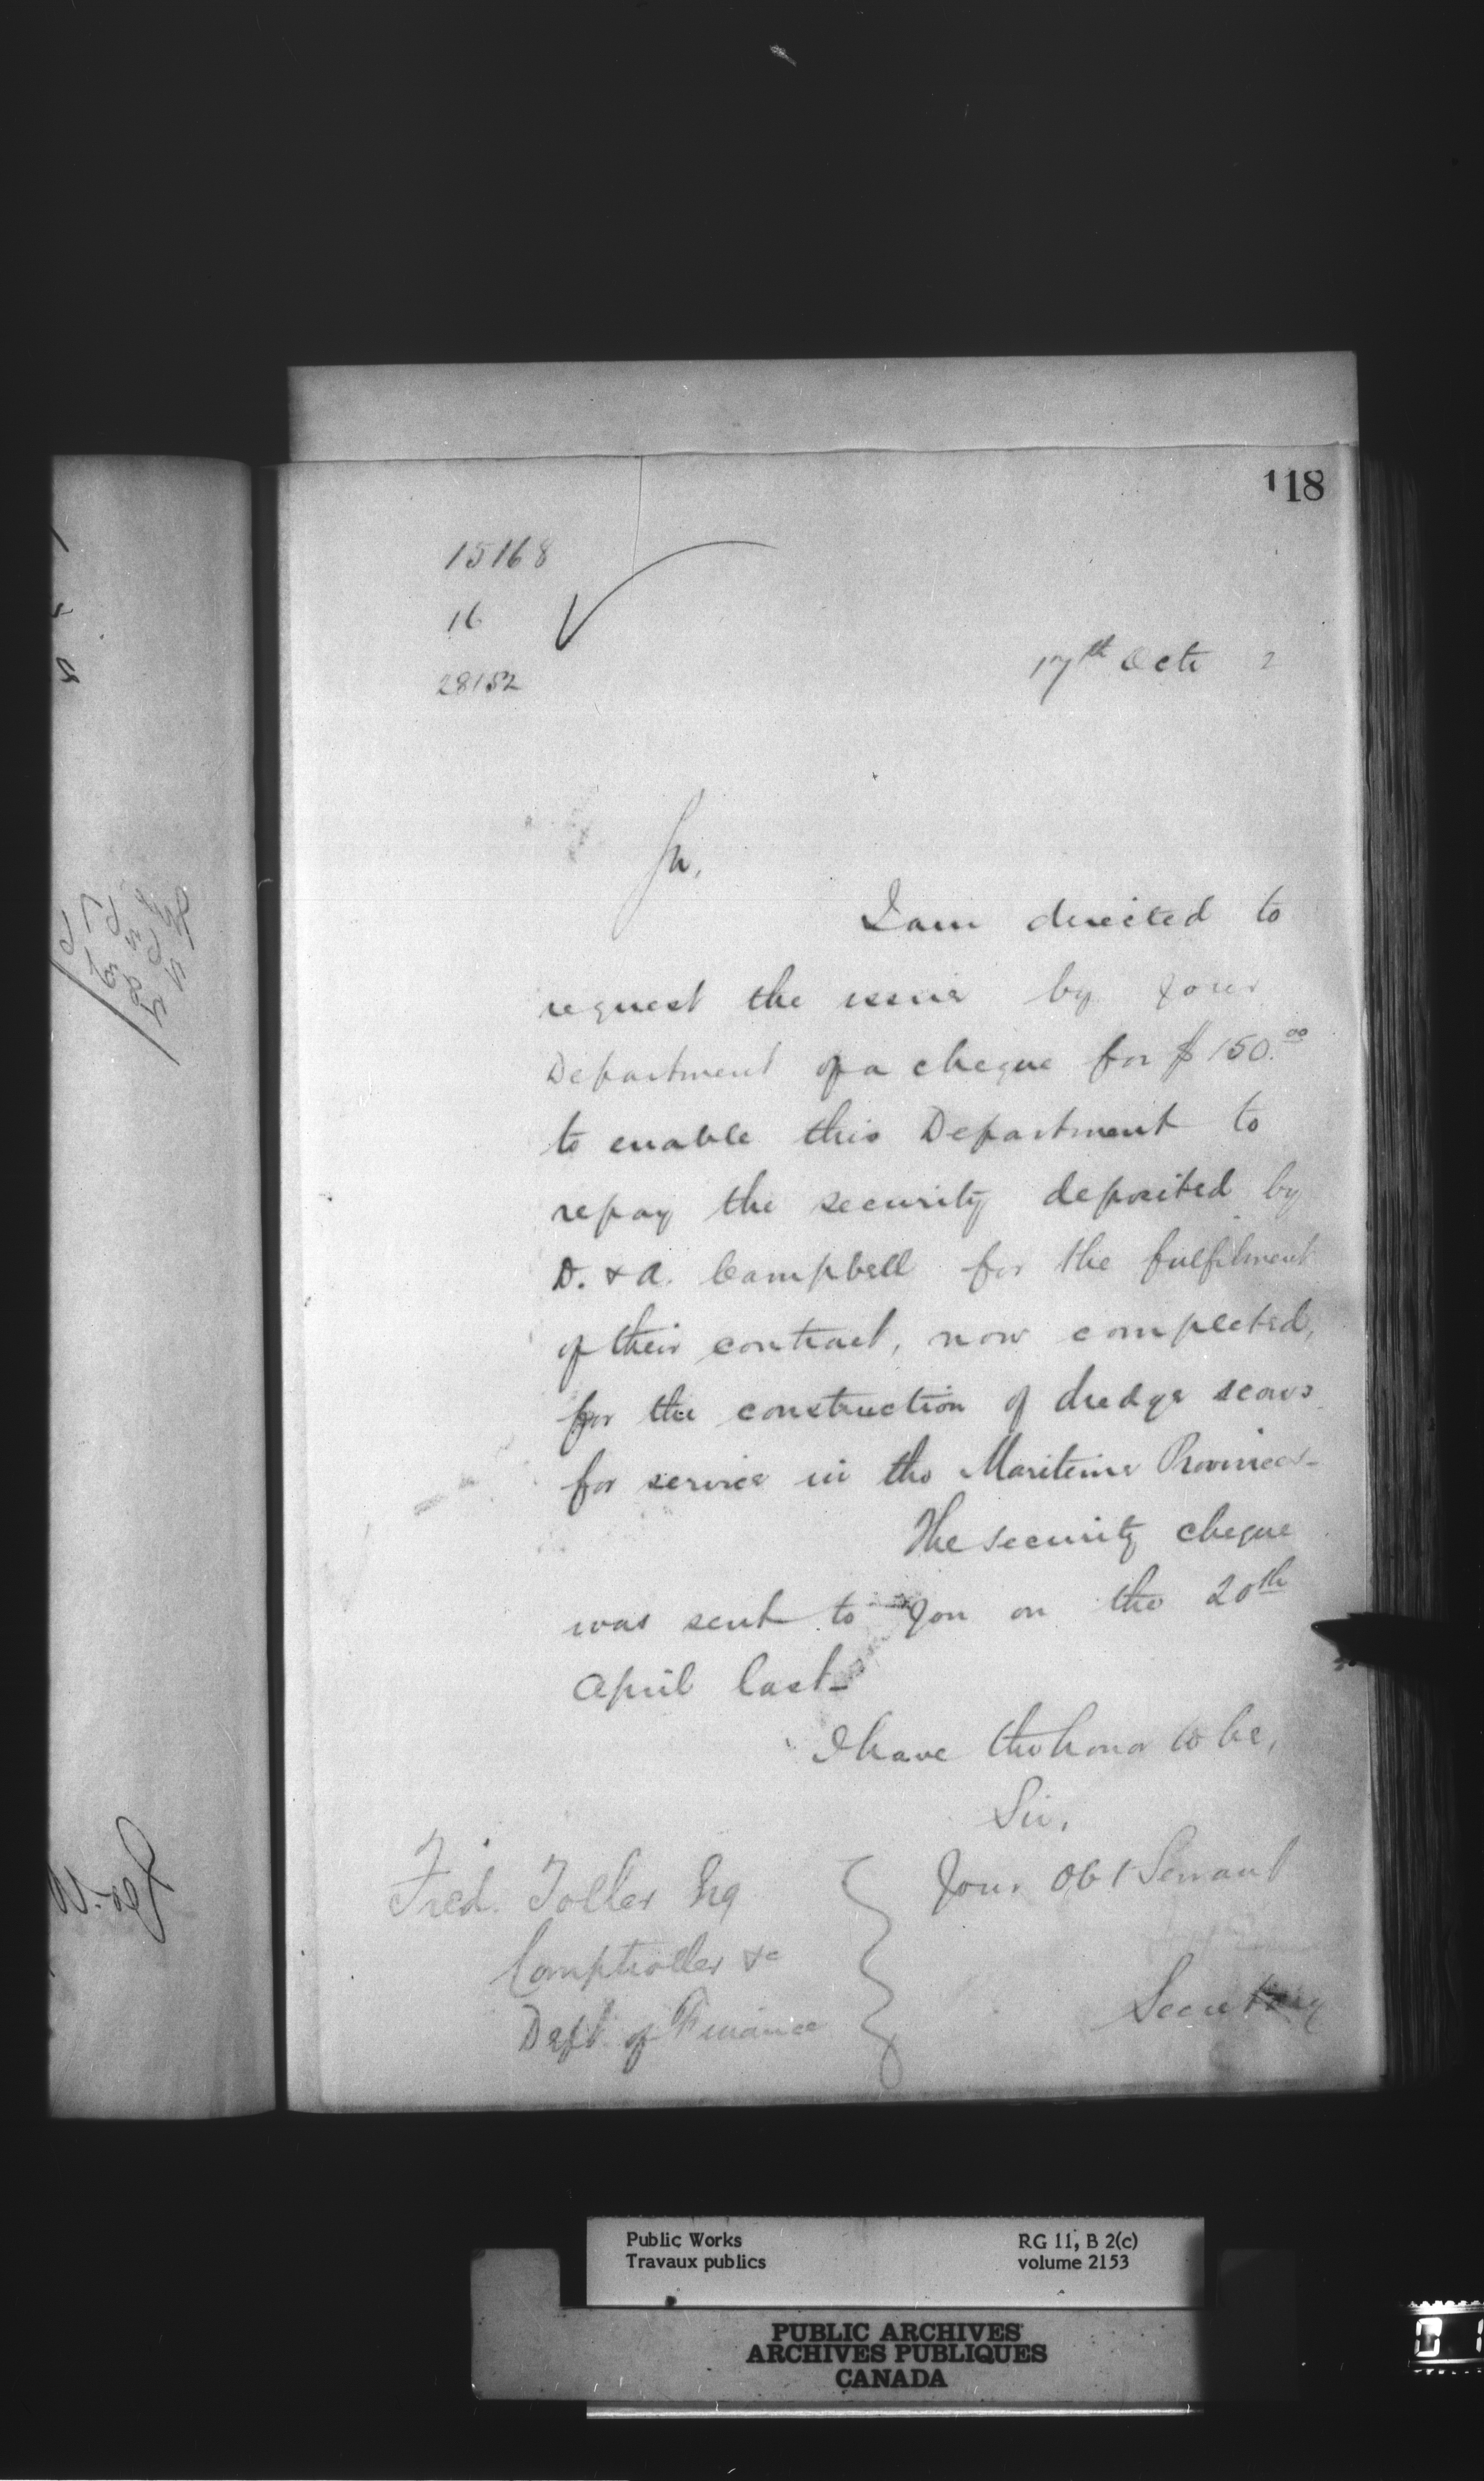 118
15168
16
28152
17th Octr 2
Sir,
I am directed to
request the issue by your
Department of a cheque for $150.00
to enable this Department to
repay the security deposited by
D. & A. Campbell for the fulfilment
of their contract, now completed,
for the construction of dredge scows
for service in the Maritime Provinces-
The security cheque
was sent to you on the 20th
April last-
I have the honor to be,
Sir,
Your Obt Servant
Secretary
Fred. Toller Esq
Comptroller &c
Dept. of Finance
Public Works
Travaux publics
RG 11, B 2(c)
volume 2153
PUBLIC ARCHIVES
ARCHIVES PUBLIQUES
CANADA